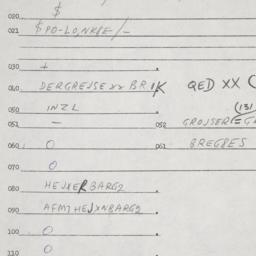 020. $
021 $PO-LO,NK/E/-
030. +
040 DERGREJSE XX BR IK QED XX (
050 INZL (131
051 - 052 GROJSER = G
060 0 061 BREGPES
070 0
080 HEJXERBARG2
090 AFM7HEJXNBARG2
100 0
110 0